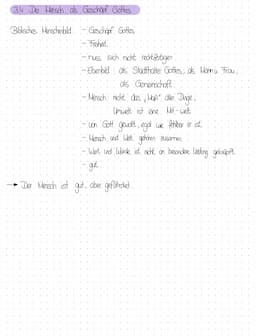 3.4 Der Mensch als Geschöpf Gottes
Biblisches Menschenbild: - Geschöpf Gottes
- Freiheit
- muss sich nicht rechtfertigen
- Ebenbild: als Statthalter Gottes, als Mann u. Frau,
als Gemeinschaft
- Mensch nicht das „Maß“ aller Dinge,
Umwelt ist eine Mit-welt
- von Gott gewollt, egal wie fehlbar er ist
- Mensch und Welt gehören zusammen
- Wert und Würde ist nicht an besondere Leistung geknüpft
- gut
→ Der Mensch ist gut, aber gefährdet